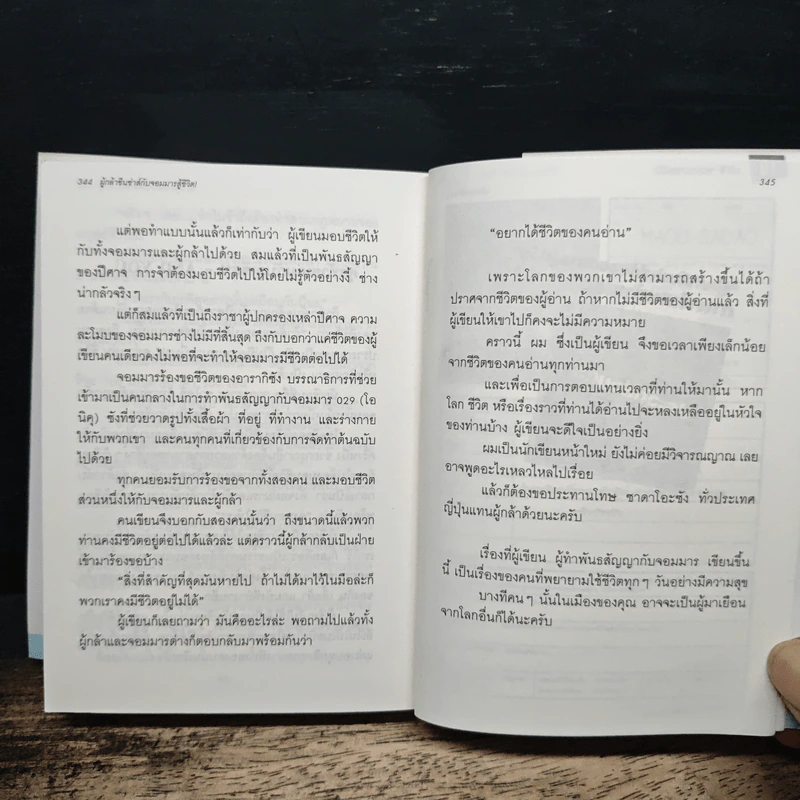 344 ผู้กล้าซึนซ่าส์กับจอมมารสู้ชีวิต!
แต่พอทำแบบนั้นแล้วก็เท่ากับว่า ผู้เขียนมอบชีวิตให้
กับทั้งจอมมารและผู้กล้าไปด้วย สมแล้วที่เป็นพันธสัญญา
ของปีศาจ การจำต้องมอบชีวิตไปให้โดยไม่รู้ตัวอย่างงี้ ช่าง
น่ากลัวจริงๆ
แต่ก็สมแล้วที่เป็นถึงราชาผู้ปกครองเหล่าปีศาจ ความ
ละโมบของจอมมารช่างไม่มีที่สิ้นสุด ถึงกับบอกว่าแค่ชีวิตของผู้
เขียนคนเดียวคงไม่พอที่จะทำให้จอมมารมีชีวิตต่อไปได้
จอมมารร้องขอชีวิตของอารากิซัง บรรณาธิการที่ช่วย
เข้ามาเป็นคนกลางในการทำพันธสัญญากับจอมมาร 029 (โอ
นิคุ) ซังที่ช่วยวาดรูปทั้งเสื้อผ้า ที่อยู่ ที่ทำงาน และร่างกาย
ให้กับพวกเขา และคนทุกคนที่เกี่ยวข้องกับการจัดทำต้นฉบับ
ไปด้วย
ทุกคนยอมรับการร้องขอจากทั้งสองคน และมอบชีวิต
ส่วนหนึ่งให้กับจอมมารและผู้กล้า
คนเขียนจึงบอกกับสองคนนั้นว่า ถึงขนาดนี้แล้วพวก
ท่านคงมีชีวิตอยู่ต่อไปได้แล้วล่ะ แต่คราวนี้ผู้กล้ากลับเป็นฝ่าย
เข้ามาร้องขอบ้าง
“สิ่งที่สำคัญที่สุดมันหายไป ถ้าไม่ได้มาไว้ในมือล่ะก็
พวกเราคงมีชีวิตอยู่ไม่ได้”
ผู้เขียนก็เลยถามว่า มันคืออะไรล่ะ พอถามไปแล้วทั้ง
ผู้กล้าและจอมมารต่างก็ตอบกลับมาพร้อมกันว่า
345
“อยากได้ชีวิตของคนอ่าน”
เพราะโลกของพวกเขาไม่สามารถสร้างขึ้นได้ถ้า
ปราศจากชีวิตของผู้อ่าน ถ้าหากไม่มีชีวิตของผู้อ่านแล้ว สิ่งที่
ผู้เขียนให้เขาไปก็คงจะไม่มีความหมาย
คราวนี้ ผม ซึ่งเป็นผู้เขียน จึงขอเวลาเพียงเล็กน้อย
จากชีวิตของคนอ่านทุกท่านมา
และเพื่อเป็นการตอบแทนเวลาที่ท่านให้มานั้น หาก
โลก ชีวิต หรือเรื่องราวที่ท่านได้อ่านไปจะหลงเหลืออยู่ในหัวใจ
ของท่านบ้าง ผู้เขียนจะดีใจเป็นอย่างยิ่ง
ผมเป็นนักเขียนหน้าใหม่ ยังไม่ค่อยมีวิจารณญาณ เลย
อาจพูดอะไรเหลวไหลไปเรื่อย
แล้วก็ต้องขอประทานโทษ ซาดาโอะซัง ทั่วประเทศ
ญี่ปุ่นแทนผู้กล้าด้วยนะครับ
เรื่องที่ผู้เขียน ผู้ทำพันธสัญญากับจอมมาร เขียนขึ้น
นี้ เป็นเรื่องของคนที่พยายามใช้ชีวิตทุกๆ วันอย่างมีความสุข
บางทีคนๆ นั้นในเมืองของคุณ อาจจะเป็นผู้มาเยือน
จากโลกอื่นก็ได้นะครับ